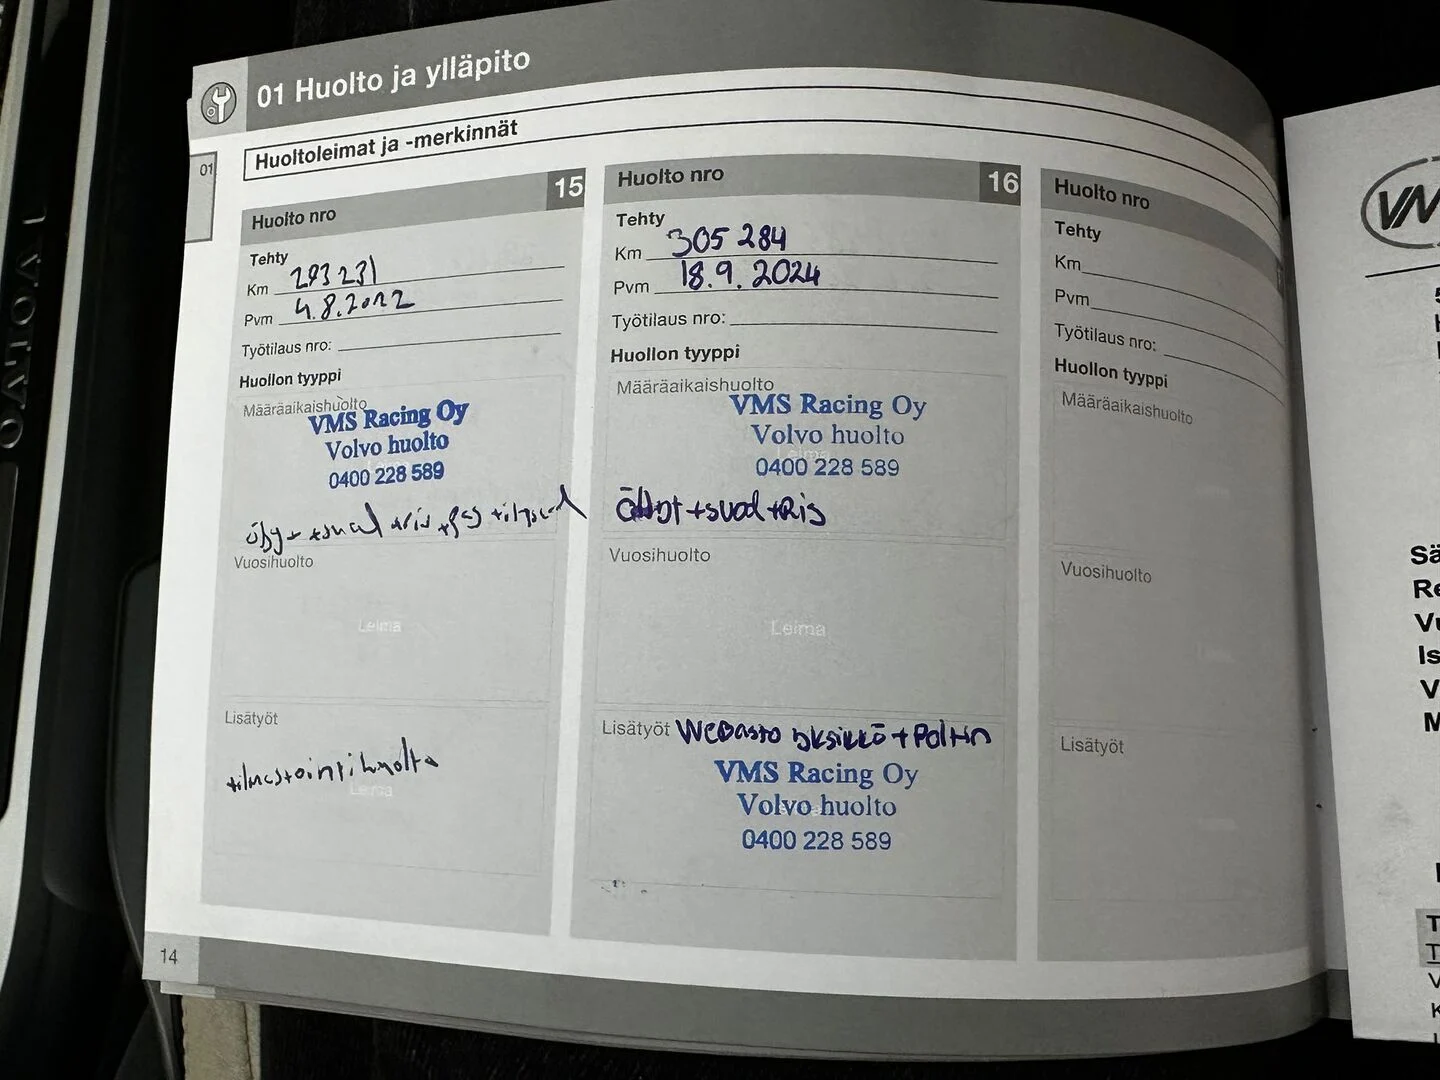 01 Huolto ja ylläpito
01
Huoltoleimat ja -merkinnät
Huolto nro 15
Tehty
Km 293 231
Pvm
Työtilaus nro:
Huollon tyyppi
Määräaikaishuolto
VMS Racing Oy
Volvo huolto
Leima
0400 228 589
Vuosihuolto
Leima
Lisätyöt
ilmastointihuolto
Leima
Huolto nro 16
Tehty
Km 305 284
Pvm 18.9.2024
Työtilaus nro:
Huollon tyyppi
Määräaikaishuolto
VMS Racing Oy
Volvo huolto
Leima
0400 228 589
+suod +Ris
Vuosihuolto
Leima
Lisätyöt Webasto yksikkö + Poltin
VMS Racing Oy
Volvo huolto
0400 228 589
Huolto nro
Tehty
Km
Pvm
Työtilaus nro:
Huollon tyyppi
Määräaikaishuolto
Vuosihuolto
Lisätyöt
14
VOLVO